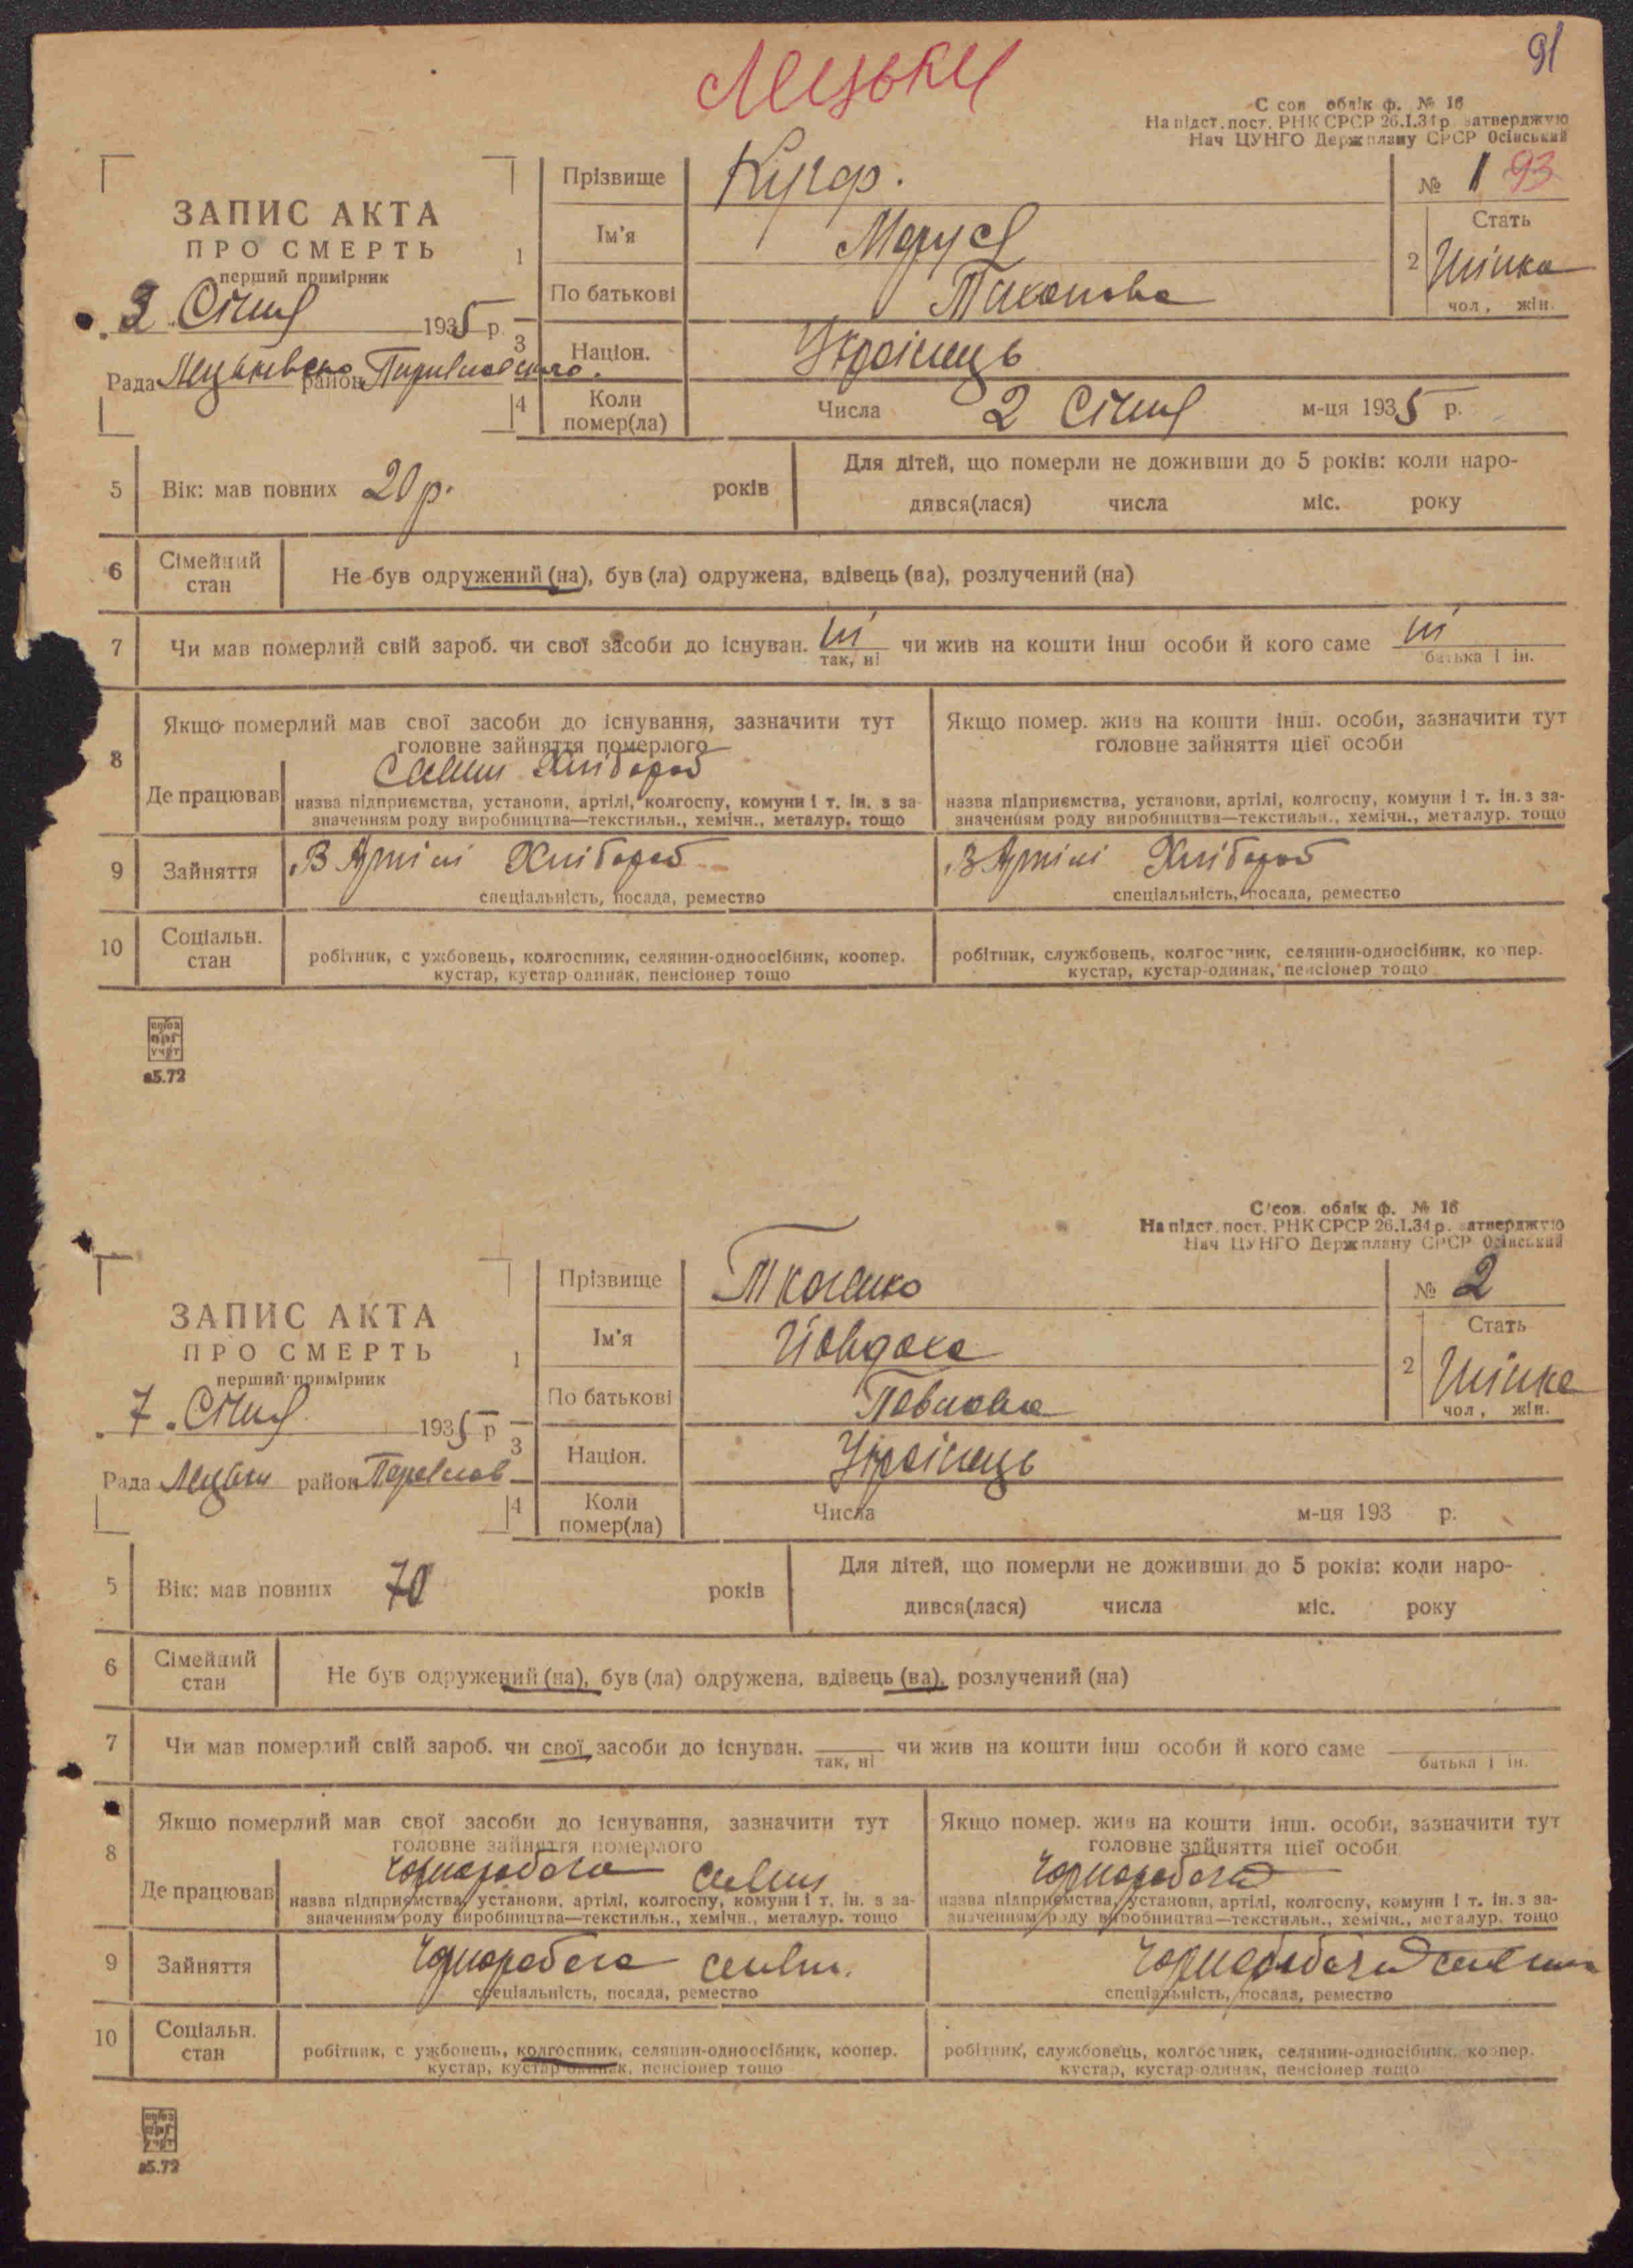 Мецьки
91
С сов облік ф. № 16
На підст. пост. РНК СРСР 26.I.34 р. затверджую
Нач ЦУНГО Держплану СРСР Осінський
ЗАПИС АКТА
ПРО СМЕРТЬ
перший примірник
2 Січня 1935 р.
Рада район
1 Прізвище
№ 1 93
Ім'я Маруся
По батькові
2 Стать Жінка
чол, жін.
3 Націон. Українець
4 Коли помер(ла) Числа 2 Січня м-ця 1935 р.
5 Вік: мав повних 20 р. років
Для дітей, що померли не доживши до 5 років: коли наро-
дився(лася) числа міс. року
6 Сімейний стан Не був одружений (на), був (ла) одружена, вдівець (ва), розлучений (на)
7 Чи мав померлий свій зароб. чи свої засоби до існуван. ні чи жив на кошти інш особи й кого саме ні
так, ні батька і ін.
8 Якщо померлий мав свої засоби до існування, зазначити тут
головне зайняття померлого
Хлібороб
Де працював назва підприємства, установи, артілі, колгоспу, комуни і т. ін. з за-
значенням роду виробництва—текстильн., хемічн., металур. тощо
Якщо помер. жив на кошти інш. особи, зазначити тут
головне зайняття цієї особи
назва підприємства, установи, артілі, колгоспу, комуни і т. ін. з за-
значенням роду виробництва—текстильн., хемічн., металур. тощо
9 Зайняття В Артілі Хлібороб
спеціальність, посада, ремество
В Артілі Хлібороб
спеціальність, посада, ремество
10 Соціальн. стан робітник, с ужбовець, колгоспник, селянин-одноосібник, коопер.
кустар, кустар-одинак, пенсіонер тощо
робітник, службовець, колгоспник, селянин-односібник, коопер.
кустар, кустар-одинак, пенсіонер тощо
союз
орг
учет
а5.72
С сов. облік ф. № 16
На підст. пост. РНК СРСР 26.I.34 р. затверджую
Нач ЦУНГО Держплану СРСР Осінський
ЗАПИС АКТА
ПРО СМЕРТЬ
перший примірник
7 Січня 1935 р
Рада Мецьки район Переяслов
1 Прізвище Ткаченко
№ 2
Ім'я Йовдоха
По батькові Павловна
2 Стать Жінка
чол, жін.
3 Націон. Українець
4 Коли помер(ла) Числа м-ця 193 р.
5 Вік: мав повних 70 років
Для дітей, що померли не доживши до 5 років: коли наро-
дився(лася) числа міс. року
6 Сімейний стан Не був одружений (на), був (ла) одружена, вдівець (ва), розлучений (на)
7 Чи мав померлий свій зароб. чи свої засоби до існуван. чи жив на кошти інш особи й кого саме
так, ні батька і ін.
8 Якщо померлий мав свої засоби до існування, зазначити тут
головне зайняття померлого
Чорноробоча
Де працював назва підприємства, установи, артілі, колгоспу, комуни і т. ін. з за-
значенням роду виробництва—текстильн., хемічн., металур. тощо
Якщо помер. жив на кошти інш. особи, зазначити тут
головне зайняття цієї особи
Чорноробоча
назва підприємства, установи, артілі, колгоспу, комуни і т. ін. з за-
значенням роду виробництва—текстильн., хемічн., металур. тощо
9 Зайняття Чорноробоча
спеціальність, посада, ремество
Чорноробоча
спеціальність, посада, ремество
10 Соціальн. стан робітник, с ужбовець, колгоспник, селянин-одноосібник, коопер.
кустар, кустар-одинак, пенсіонер тощо
робітник, службовець, колгоспник, селянин-односібник, коопер.
кустар, кустар-одинак, пенсіонер тощо
союз
орг
учет
а5.72